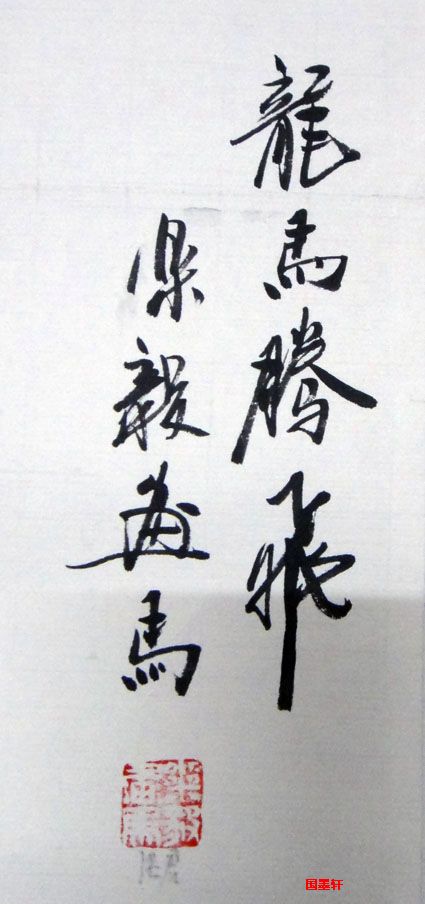 龍馬騰飛
毅畫馬
国墨轩